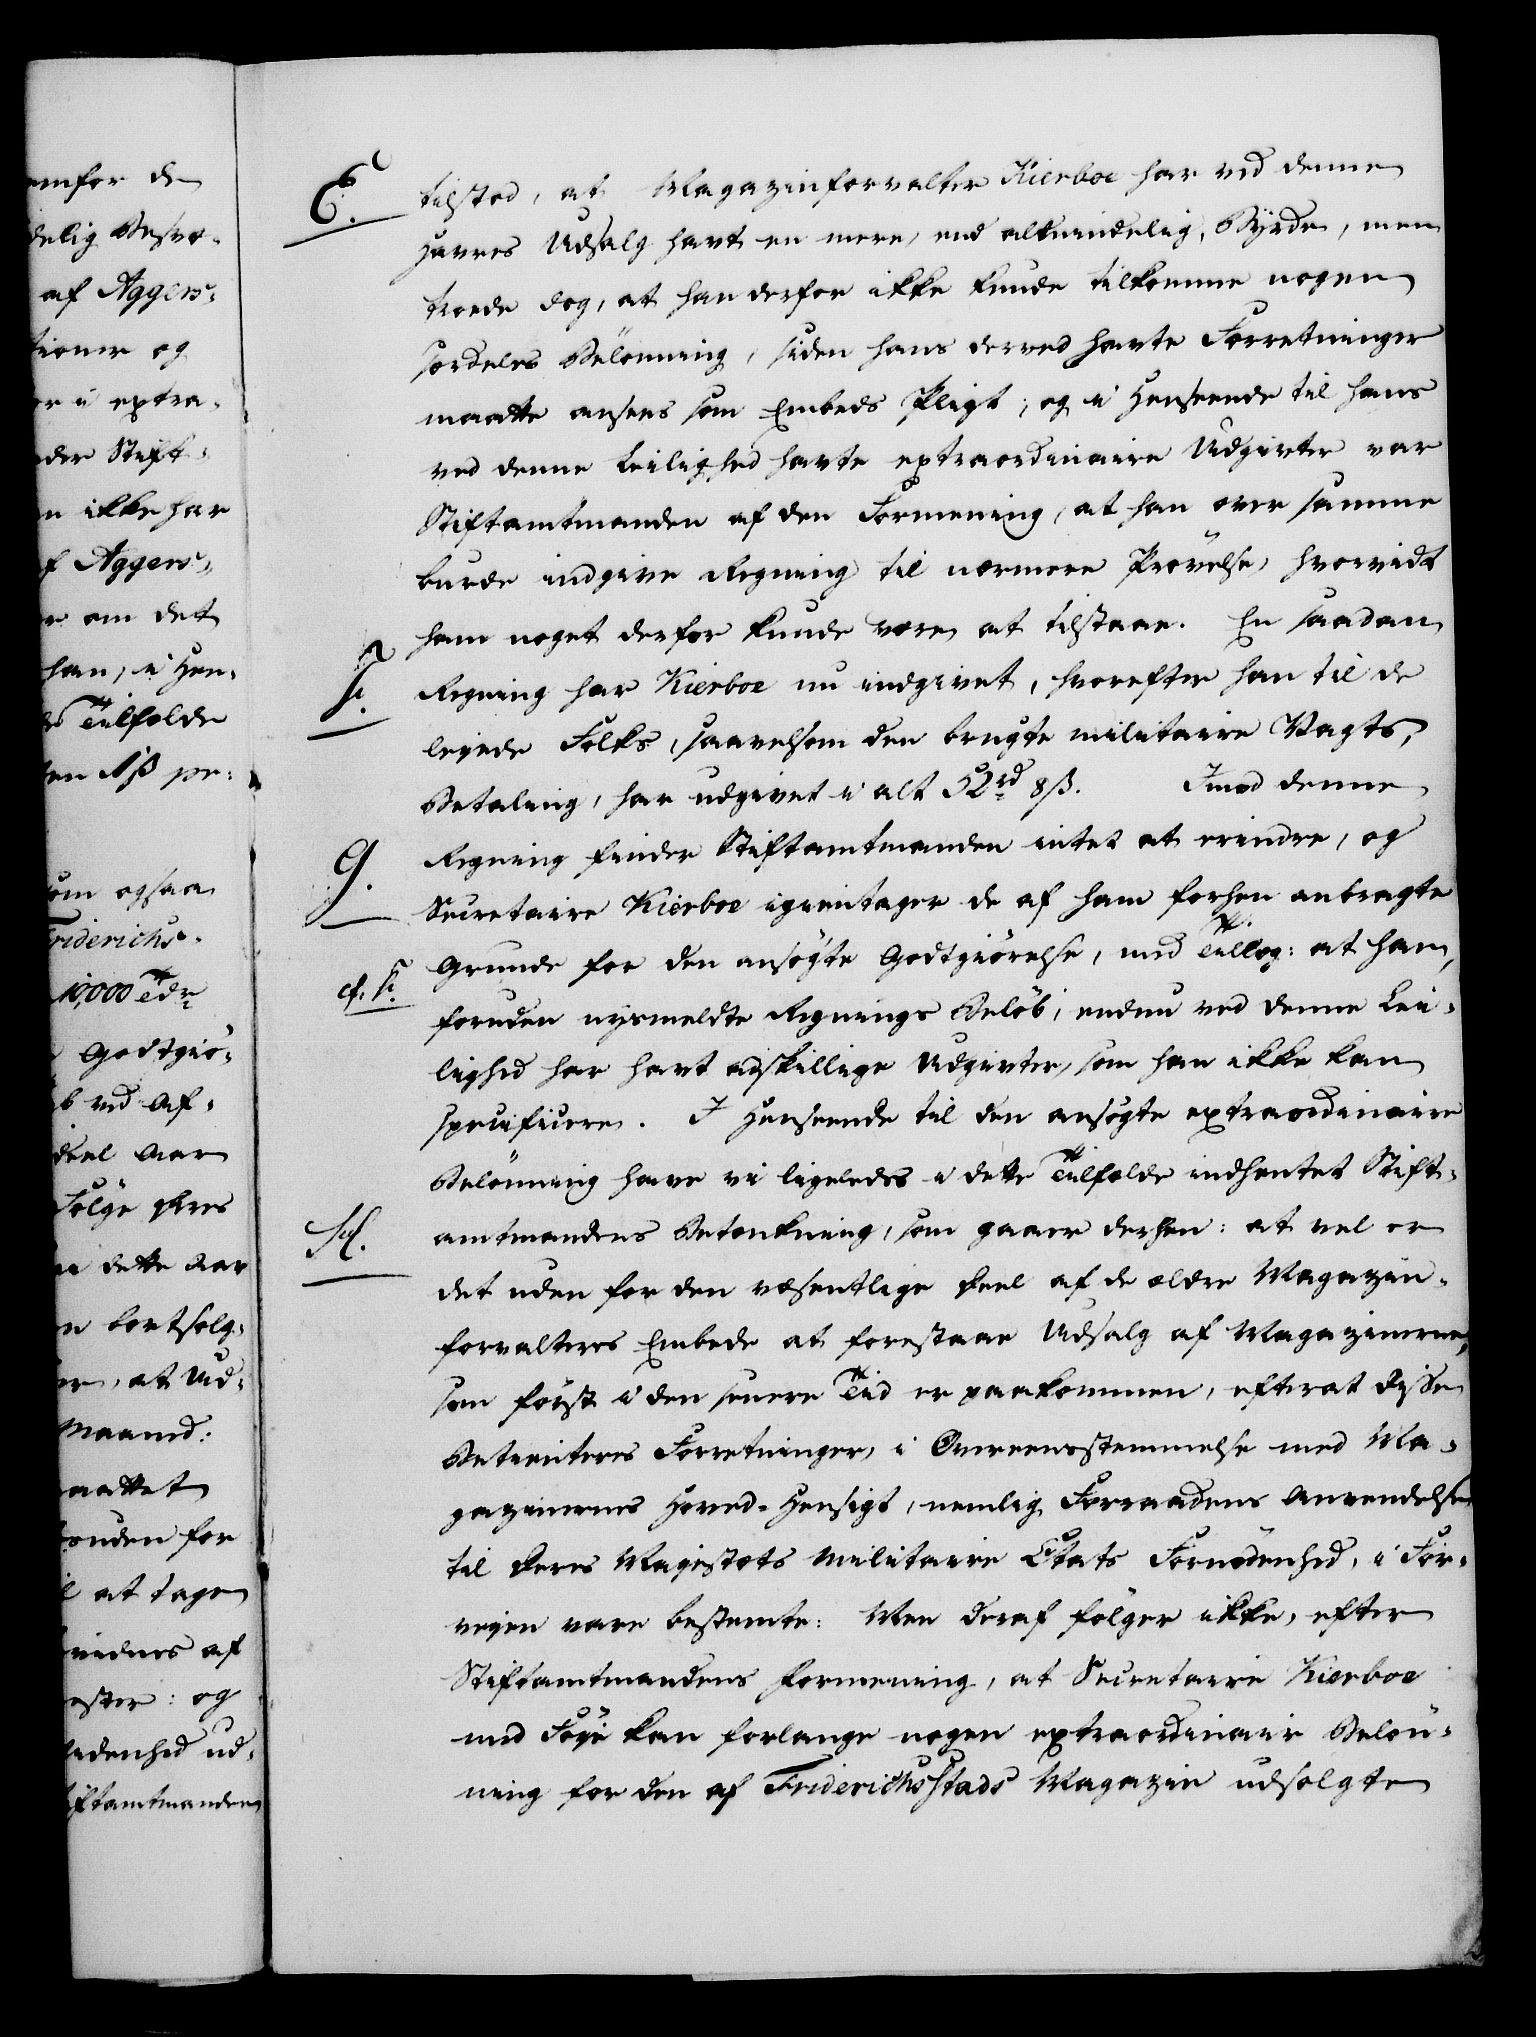 emfor de
delig Besvæ-
af Aggers-
tioner og
or i extra-
der Stift-
n ikke har
f Aggers-
r om det
han, i Hen-
de Tilfælde
ten 1/2 pr:
som ogsaa
Friderichs-
10,000 Tdr
Godtgiö-
b ved Af-
deel Aar
Fölge Deres
n dette Aar
n bortsolg-
er, at Ud-
Maaned:
aattet
onden for
l at tage
vidnes af
ester: og
ledenhed ud-
iftamtmanden
E. tilstod, at Magazinforvalter Kierboe har ved denne
Havres Udsalg havt en mere, end almindelig, Byrde, men
troede dog, at han derfor ikke kunde tilkomme nogen
særdeles Belönning, siden hans derved havte Forretninger
maatte ansees som Embeds Pligt; og i Henseende til hans
ved denne Leilighed havte extraordinaire Udgivter var
Stiftamtmanden af den Formening, at han over samme
burde indgive Regning til nærmere Prövelse, hvorvidt
ham noget derfor kunde være at tilstaae. En saadan
F. Regning har Kierboe nu indgivet, hvorefter han til de
leiede Folks, saavelsom den brugte militaire Vagts,
Betaling, har udgivet i alt 52 rd 8 ß. Imod denne
G. Regning finder Stiftamtmanden intet at erindre, og
Secretaire Kierboe igientager de af ham forhen anbragte
Grunde for den ansögte Godtgiörelse, med Tillæg: at han,
cf. F. foruden nysmeldte Regnings Belöb, endnu ved denne Lei-
lighed har havt adskillige Udgivter, som han ikke kan
specificere. I Henseende til den ansögte extraordinaire
Belönning have vi ligeledes i dette Tilfælde indhentet Stift-
H. amtmandens Betænkning, som gaaer derhen: at vel er
det uden for den væsentlige Deel af de ældre Magazin-
forvalteres Embede at forestaae Udsalg af Magazinerne,
som först i den senere Tid er paakommen, efterat disse
Betienteres Forretninger, i Overeensstemmelse med Ma-
gazinernes Hoved-Hensigt, nemlig Forraadens Anvendelse
til Deres Majestæts Militaire Etats Fornödenhed, i For-
veien vare bestemte: Men deraf fölger ikke, efter
Stiftamtmandens Formening, at Secretaire Kierboe
med Föie kan forlange nogen extraordinair Belön-
ning for den af Friderichsstads Magazin udsolgte